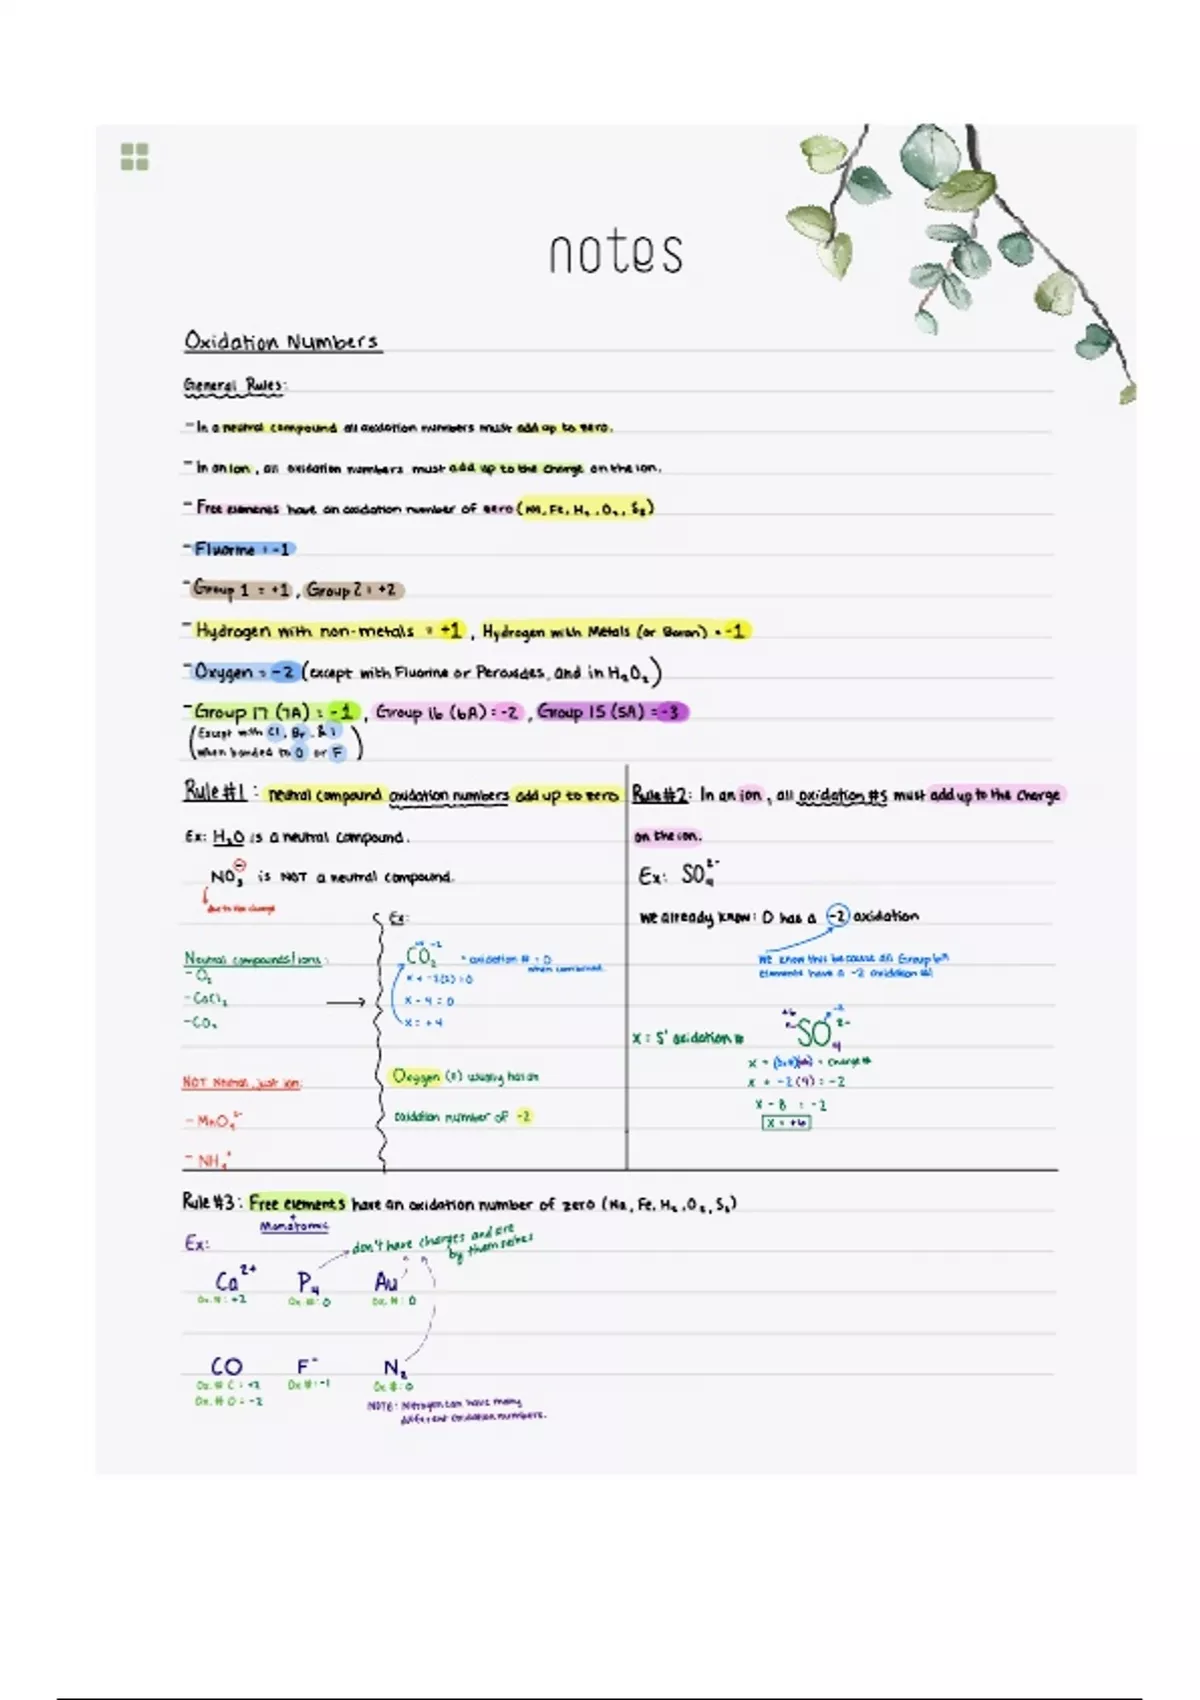 notes
Oxidation Numbers
General Rules:
- In a neutral compound all oxidation numbers must add up to zero.
- In an ion, all oxidation numbers must add up to the charge on the ion.
- Free elements have an oxidation number of zero (Na, Fe, H₂, O₂, S₈)
- Fluorine = -1
- Group 1 = +1, Group 2 = +2
- Hydrogen with non-metals = +1, Hydrogen with Metals (or Boron) = -1
- Oxygen = -2 (except with Fluorine or Peroxides, and in H₂O₂)
- Group 17 (7A) = -1, Group 16 (6A) = -2, Group 15 (5A) = -3
(Except with Cl, Br, & I
when bonded to O or F)
Rule #1: neutral compound oxidation numbers add up to zero
Ex: H₂O is a neutral compound.
NO₃⁻ is NOT a neutral compound.
due to the charge
Neutral compounds/ions:
- O₂
- CaCl₂
- CO₂
NOT Neutral, just ion:
- MnO₄²⁻
- NH₄⁺
Ex:
+4 -2
CO₂ * oxidation # = 0
when combined.
x + -2(2) = 0
x - 4 = 0
x = +4
Oxygen (O) usually has an
oxidation number of -2
Rule #2: In an ion, all oxidation #s must add up to the charge
on the ion.
Ex: SO₄²⁻
We already know: O has a -2 oxidation
We know this because all Group 6A
elements have a -2 oxidation #!
+6 -2
x SO₄²⁻
x = S' oxidation #
= charge #
x + -2(4) = -2
x - 8 = -2
x = +6
Rule #3: Free elements have an oxidation number of zero (Na, Fe, H₂, O₂, S₈)
Monatomic
Ex:
don't have charges and are
by themselves
Ca²⁺ P₄ Au
Ox. #: +2 Ox. #: 0 Ox. #: 0
CO F⁻ N₂
Ox. # C = +2 Ox #: -1 Ox #: 0
Ox. # O = -2
NOTE: Nitrogen can have many
different oxidation numbers.